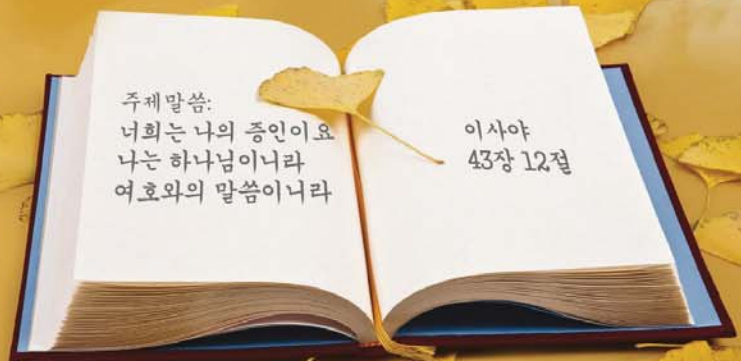 주제말씀:
너희는 나의 증인이요
나는 하나님이니라
여호와의 말씀이니라
이사야
43장 12절